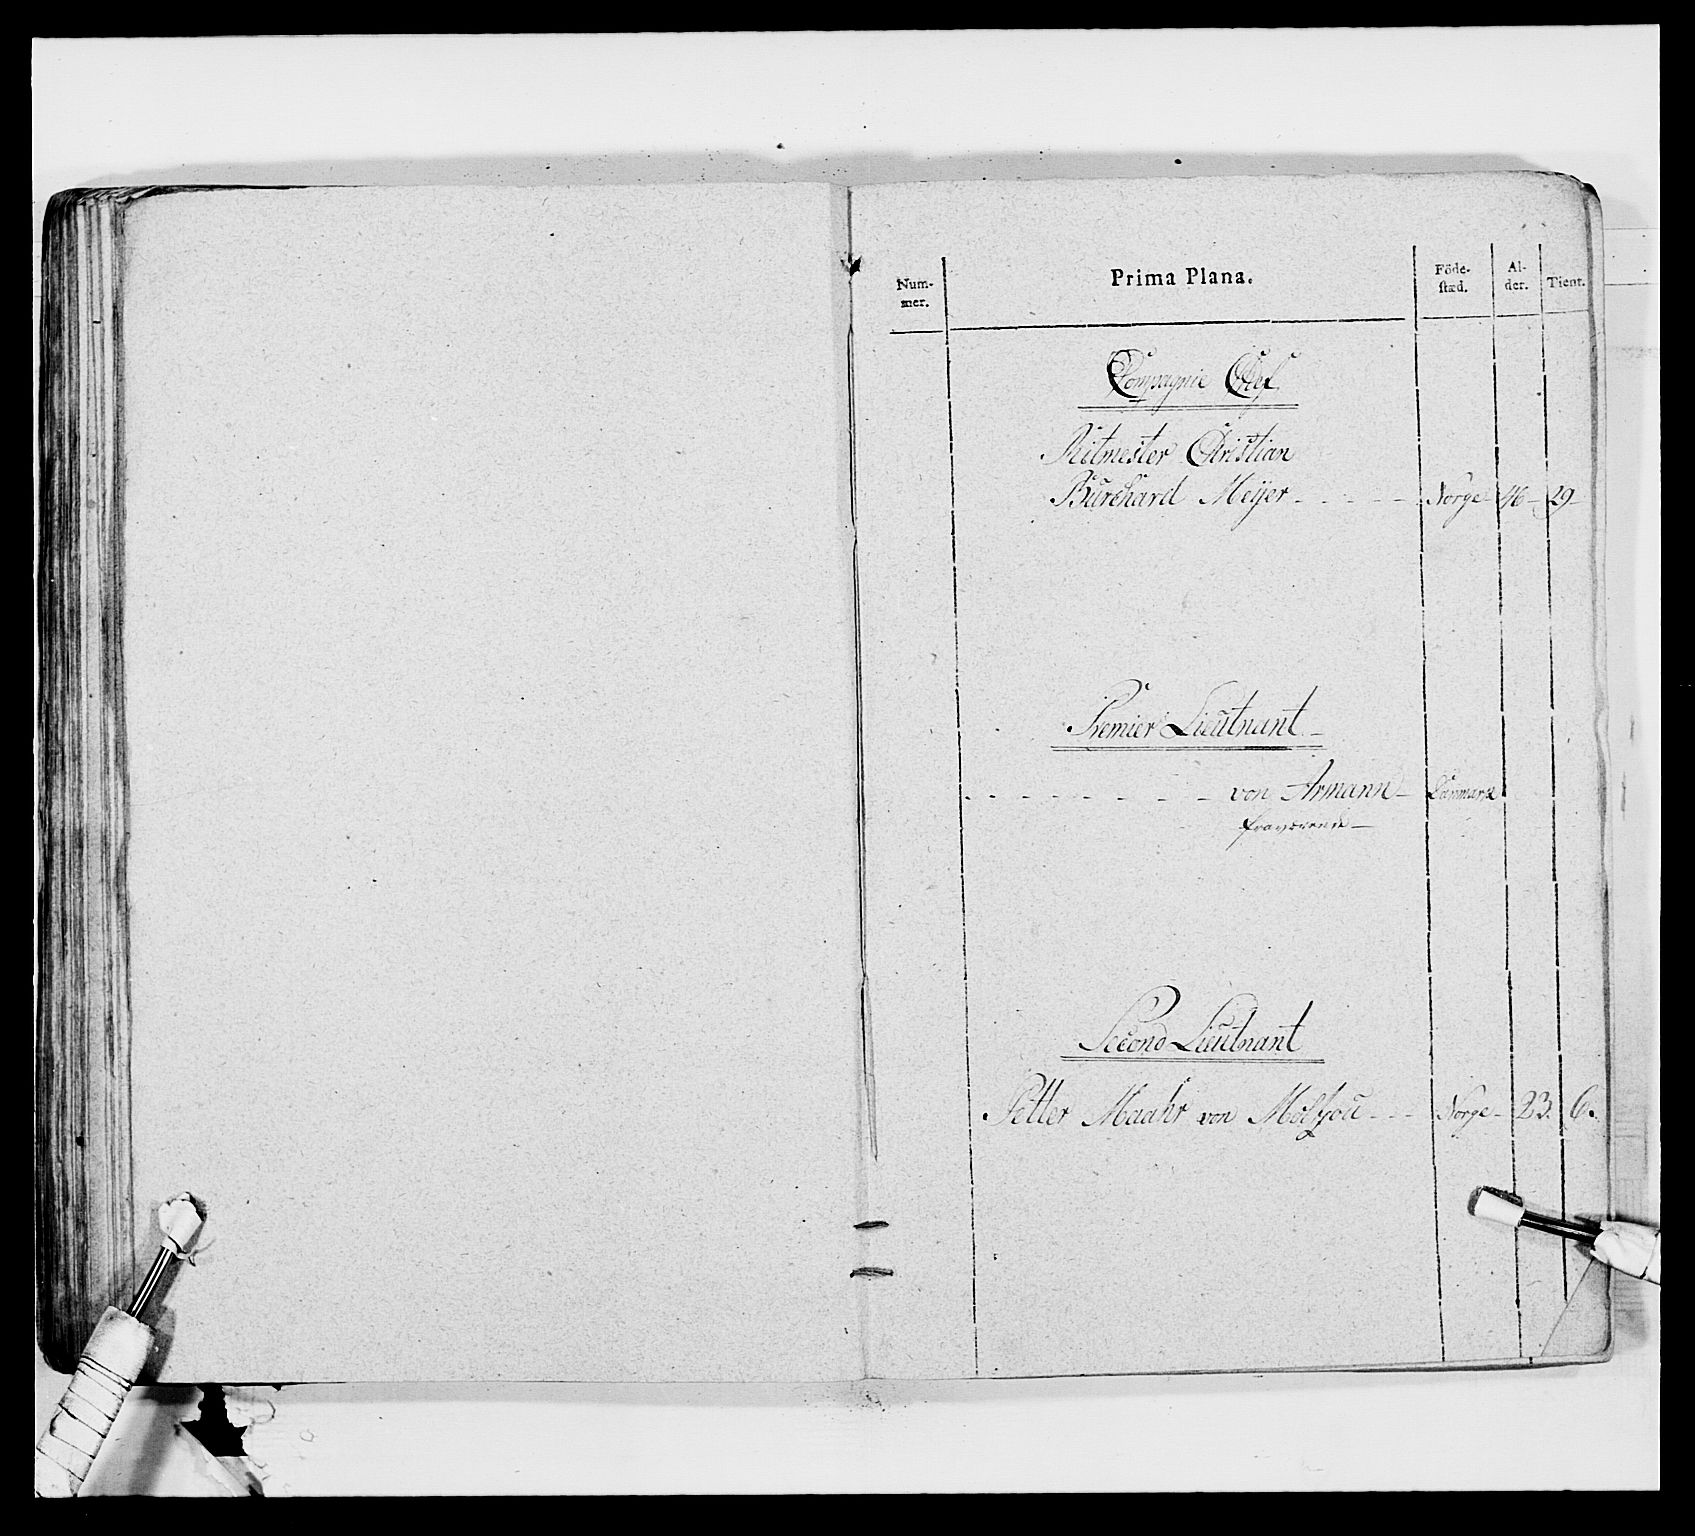 Num-
mer.
Prima Plana.
Föde-
stæd.
Al-
der.
Tient.
Compagnie Chef
Ritmester Christian
Burchard Meijer - - - - - Norge 46 - 29 -
Premier Lieutnant -
- - - - - - - - von Armann - Danmark
fraværende -
Second Lieutnant
Petter Maahr von - - - Norge - 23. 6.